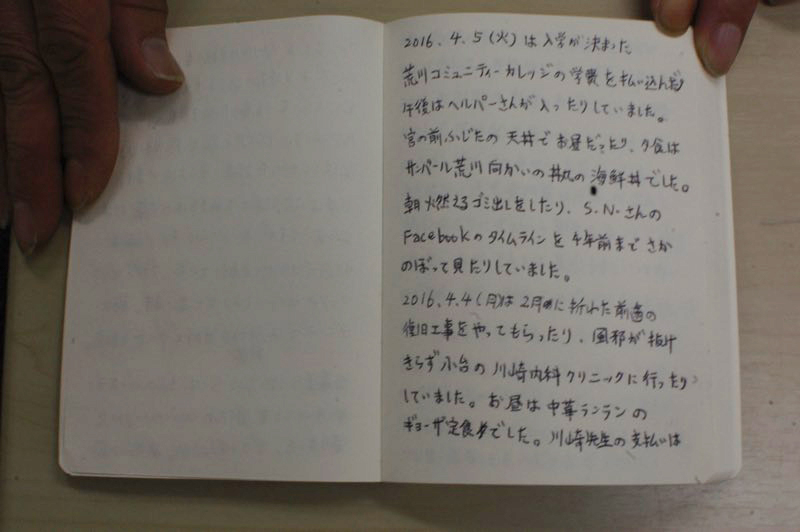 2016.4.5(火)は入学が決まった
荒川コミュニティーカレッジの学費を払い込んだり
午後はヘルパーさんが入ったりしていました。
宮の前ふじたの天丼でお昼だったり、夕食は
サンパール荒川向かいの丼丸の海鮮丼でした。
朝燃えるゴミ出しをしたり、S.N.さんの
Facebookのタイムラインを4年前までさか
のぼって見たりしていました。
2016.4.4(月)は2月に折れた前歯の
復旧工事をやってもらったり、風邪が抜け
きらず小台の川崎内科クリニックに行ったり
していました。お昼は中華ランランの
ギョーザ定食でした。川崎先生の支払いは